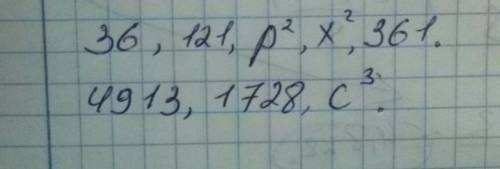 36, 121, p², x², 361.
4913, 1728, c³.